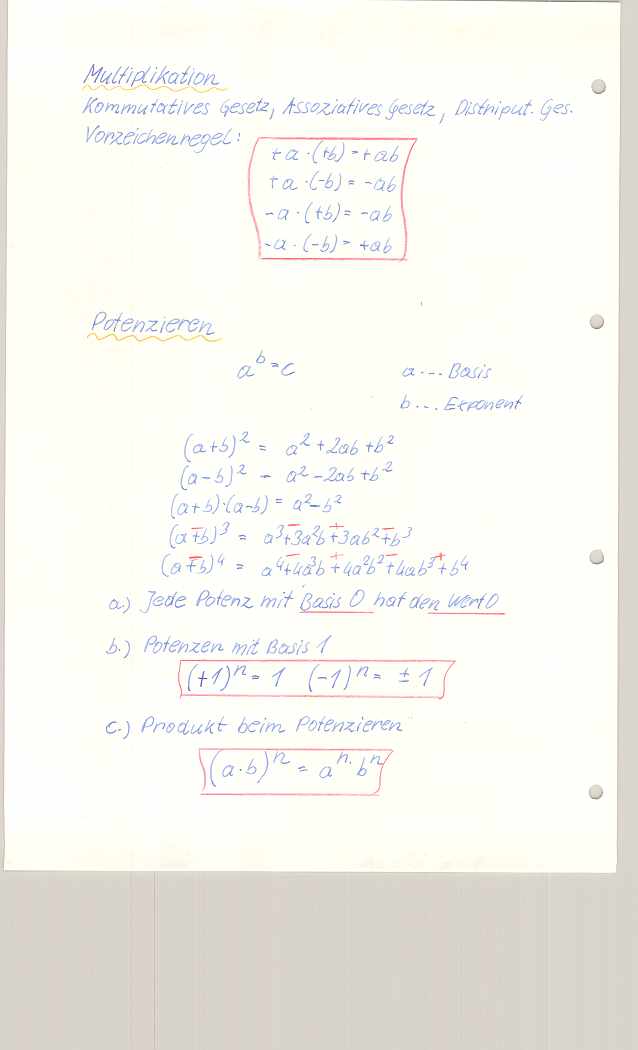 Multiplikation
Kommutatives Gesetz, Assoziatives Gesetz, Distriput. Ges.
Vorzeichenregel:
+a·(+b)=+ab
+a·(-b)= -ab
-a·(+b)= -ab
-a·(-b)= +ab
Potenzieren
a^b=c a... Basis
b... Exponent
(a+b)² = a²+2ab+b²
(a-b)² = a²-2ab+b²
(a+b)·(a-b)= a²-b²
(a∓b)³ = a³∓3a²b±3ab²∓b³
(a∓b)⁴ = a⁴∓4a³b±4a²b²∓4ab³±b⁴
a.) Jede Potenz mit Basis 0 hat den Wert 0
b.) Potenzen mit Basis 1
(+1)ⁿ= 1 (-1)ⁿ= ±1
c.) Produkt beim Potenzieren
(a·b)ⁿ = aⁿ·bⁿ